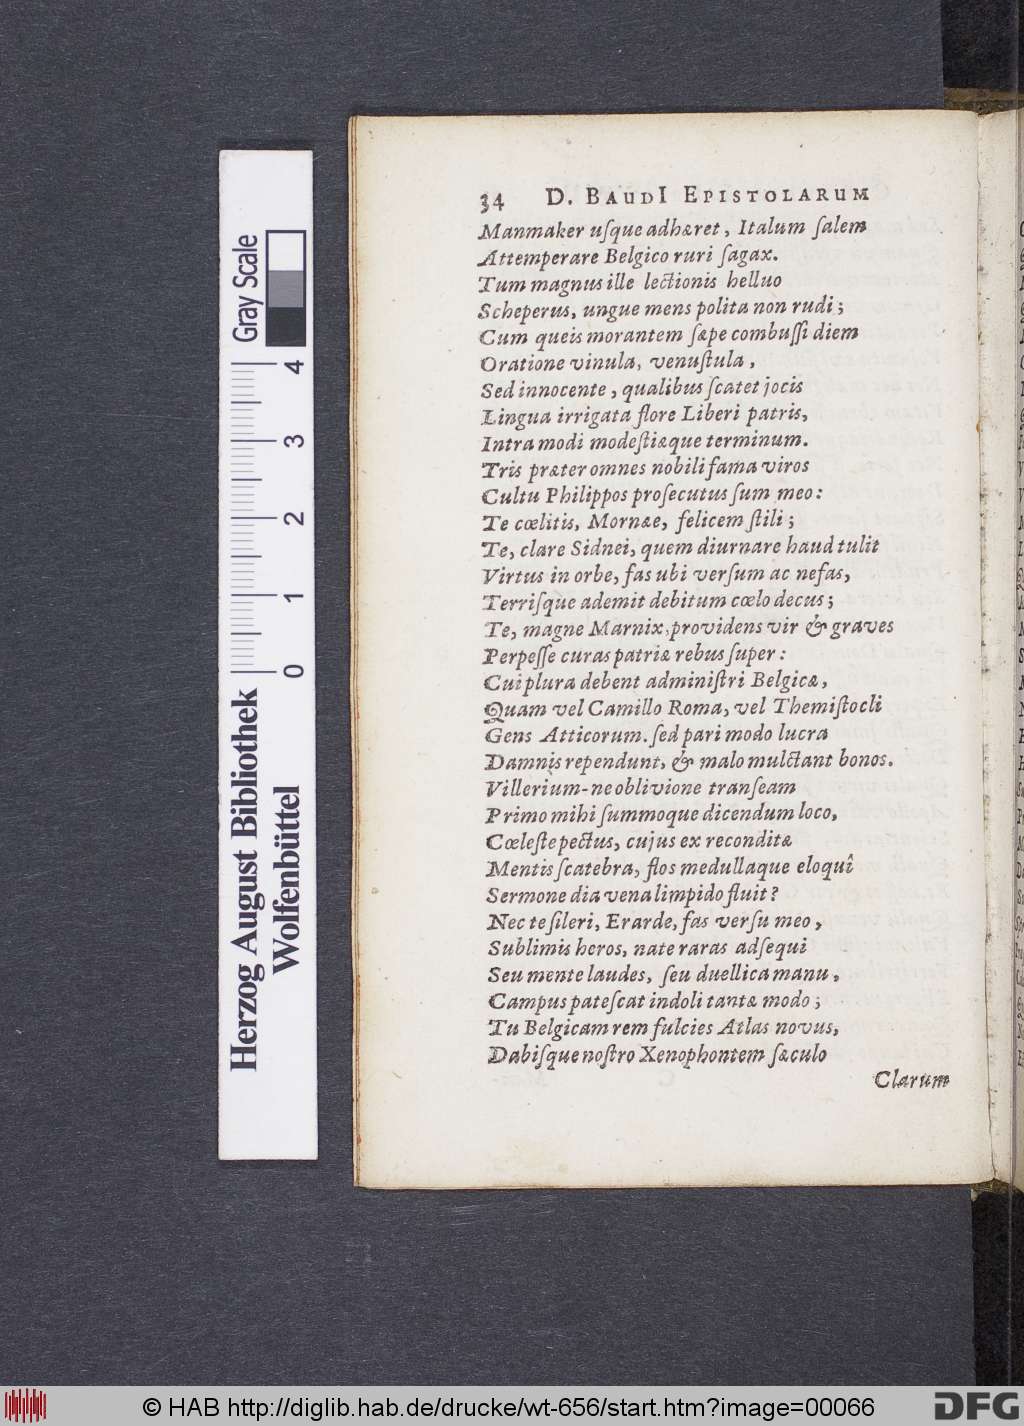 34 D. BAUDI EPISTOLARUM
Manmaker uſque adhæret, Italum ſalem
Attemperare Belgico ruri ſagax.
Tum magnus ille lectionis helluo
Scheperus, ungue mens polita non rudi;
Cum queis morantem ſæpe combuſſi diem
Oratione vinula, venuſtula,
Sed innocente, qualibus ſcatet jocis
Lingua irrigata flore Liberi patris,
Intra modi modeſtiæque terminum.
Tris præter omnes nobili fama viros
Cultu Philippos proſecutus ſum meo:
Te cœlitis, Mornæe, felicem ſtili;
Te, clare Sidnei, quem diurnare haud tulit
Virtus in orbe, fas ubi verſum ac nefas,
Terriſque ademit debitum cœlo decus;
Te, magne Marnix, providens vir & graves
Perpeſſe curas patriæ rebus ſuper:
Cui plura debent adminiſtri Belgicæ,
Quam vel Camillo Roma, vel Themiſtocli
Gens Atticorum. ſed pari modo lucra
Damnis rependunt, & malo mulctant bonos.
Villerium-ne oblivione tranſeam
Primo mihi ſummoque dicendum loco,
Cœleſte pectus, cujus ex recondita
Mentis ſcatebra, flos medullaque eloquî
Sermone dia vena limpido fluit?
Nec te ſileri, Erarde, fas verſu meo,
Sublimis heros, nate raras adſequi
Seu mente laudes, ſeu duellica manu,
Campus pateſcat indoli tantæ modo;
Tu Belgicam rem fulcies Atlas novus,
Dabiſque noſtro Xenophontem ſæculo
Clarum
Gray Scale
4
3
2
1
0
Herzog August Bibliothek
Wolfenbüttel
© HAB http://diglib.hab.de/drucke/wt-656/start.htm?image=00066
DFG